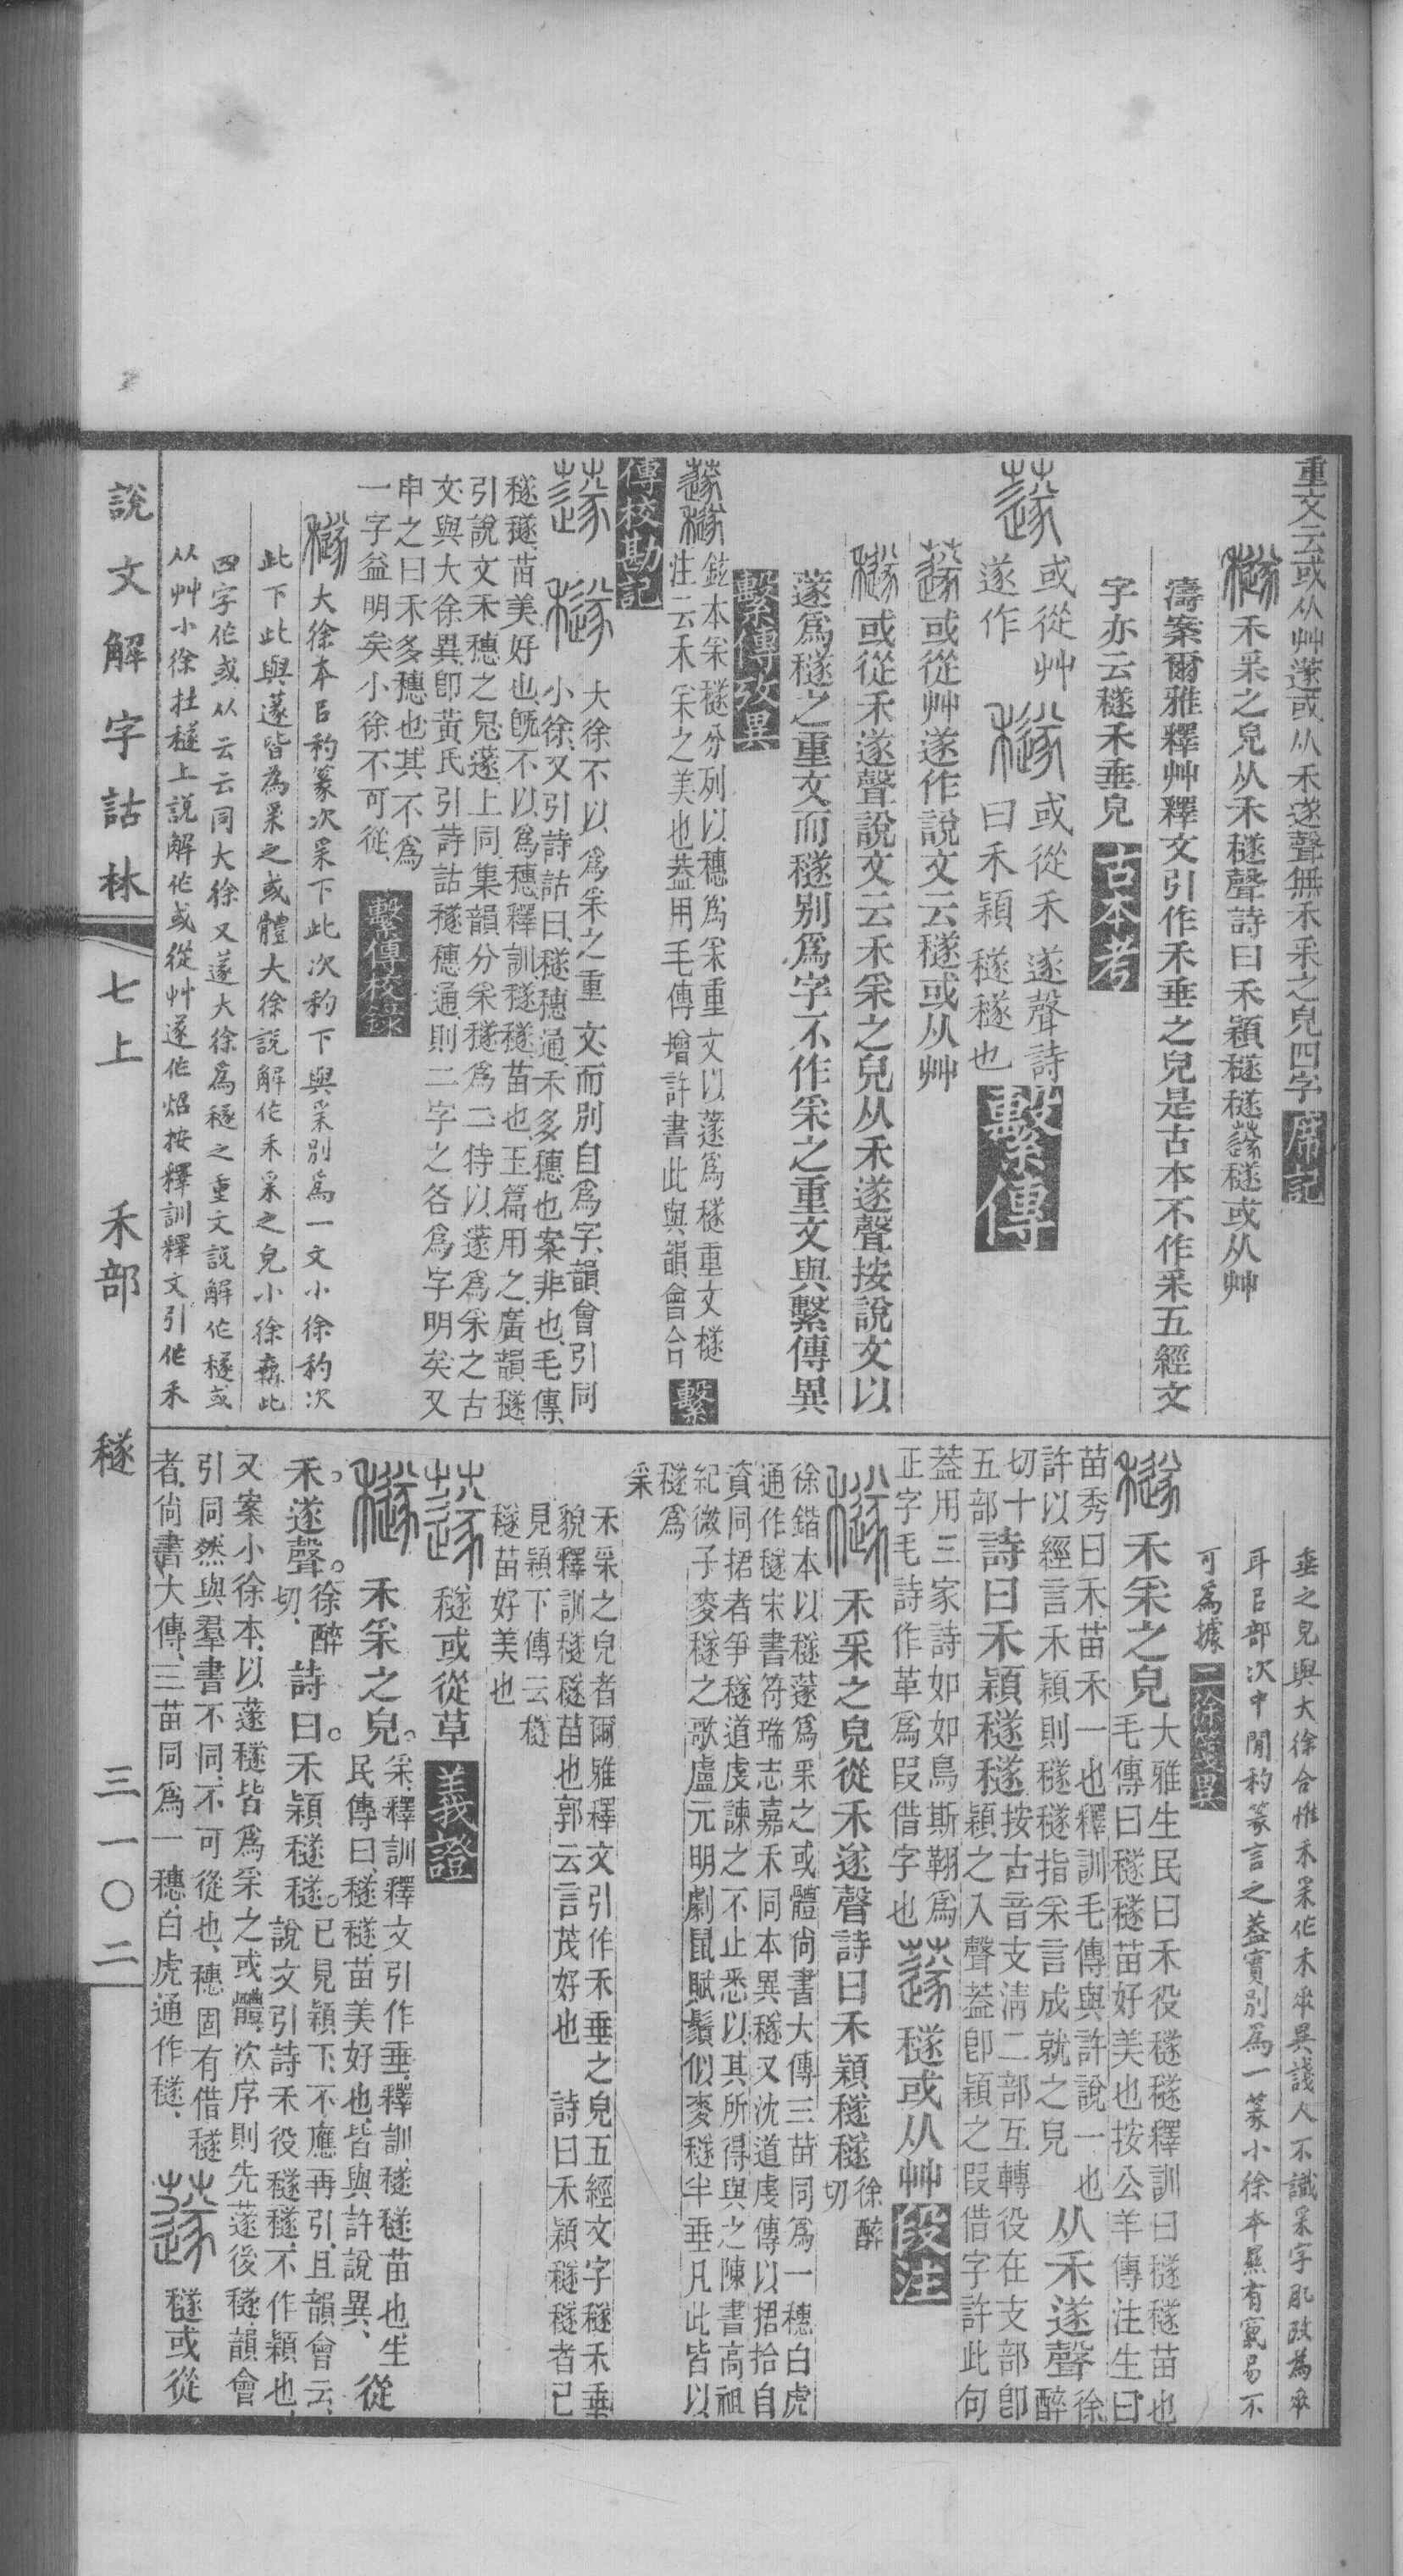 重文云或从艸蓫或从禾遂聲無禾采之皃四字 席記
穟 禾采之皃从禾穟聲詩曰禾穎穟穟䔹穟或从艸
濤案爾雅釋艸釋文引作禾垂之皃是古本不作采五經文
字亦云穟禾垂皃 古本考
䔹 或從艸遂作 穟 或從禾遂聲詩曰禾穎穟穟也 繫傳
䔹 或從艸遂作說文云穟或从艸
穟 或從禾遂聲說文云禾采之皃从禾遂聲按說文以
蓫爲穟之重文而穟別爲字不作采之重文與繫傳異
繫傳攷異
䔹穟 鉉本采穟分列以穗爲采重文以蓫爲穟重文穟
注云禾采之美也葢用毛傳增許書此與韻會合 繫
傳校勘記
䔹 穟 大徐不以爲采之重文而別自爲字韻會引同
小徐又引詩詁曰穟穗通禾多穗也案非也毛傳
穟穟苗美好也旣不以爲穗釋訓穟穟苗也玉篇用之廣韻穟
引說文禾穗之皃蓫上同集韻分采穟爲二特以蓫爲采之古
文與大徐異卽黃氏引詩詁穟穗通則二字之各爲字明矣又
申之曰禾多穗也其不爲
一字益明矣小徐不可從 繫傳校錄
穟 大徐本㠯䄪篆次采下此次䄪下與采別爲一文小徐䄪次
此下此與蓫皆為采之或體大徐說解作禾采之皃小徐無此
四字作或从云云同大徐又蓫大徐爲穟之重文說解作穟或
从艸小徐在穟上說解作或從艸遂作炤按釋訓釋文引作禾
垂之皃與大徐合惟禾采作禾垂異淺人不識采字肊改為垂
耳㠯部次中閒䄪篆言之葢實別爲一篆小徐本㬎有竄易不
可為據 二徐箋異
穟 禾采之皃 大雅生民曰禾役穟穟釋訓曰穟穟苗也
毛傳曰穟穟苗好美也按公羊傳注生曰
苗秀曰禾苗禾一也釋訓毛傳與許說一也
許以經言禾穎則穟穟指采言成就之皃 从禾遂聲 徐醉
切十五部 詩曰禾穎穟穟 按古音支淸二部互轉役在支部卽
穎之入聲葢卽穎之叚借字許此句
葢用三家詩如如鳥斯翶爲
正字毛詩作革爲叚借字也 䔹 穟或从艸 段注
穟 禾采之皃從禾遂聲詩曰禾穎穟穟 徐醉切
徐鍇本以穟蓫爲采之或體尙書大傳三苗同爲一穗白虎
通作穟宋書符瑞志嘉禾同本異穟又沈道虔傳以捃拾自
資同捃者爭穟道虔諫之不止悉以其所得與之陳書高祖
紀微子麥穟之歌盧元明劇鼠賦鬚似麥穟半垂凡此皆以
穟爲
采
禾采之皃者爾雅釋文引作禾垂之皃五經文字穟禾垂
貌釋訓穟穟苗也郭云言茂好也 詩曰禾穎穟穟者已
見穎下傳云穟
穟苗好美也
䔹 穟或從草 義證
穟 禾采之皃。 采釋訓釋文引作垂釋訓穟穟苗也生
民傳曰穟穟苗美好也皆與許說異 從
禾。遂聲。 徐醉切 詩曰。禾穎穟穟。 已見穎下不應再引且韻會云
說文引詩禾役穟穟不作穎也
又案小徐本以蓫穟皆爲采之或體次序則先蓫後穟韻會
引同然與羣書不同不可從也穗固有借穟
者尙書大傳三苗同爲一穗白虎通作穟 䔹 穟或從
說文解字詁林 七上 禾部 穟 三一〇二